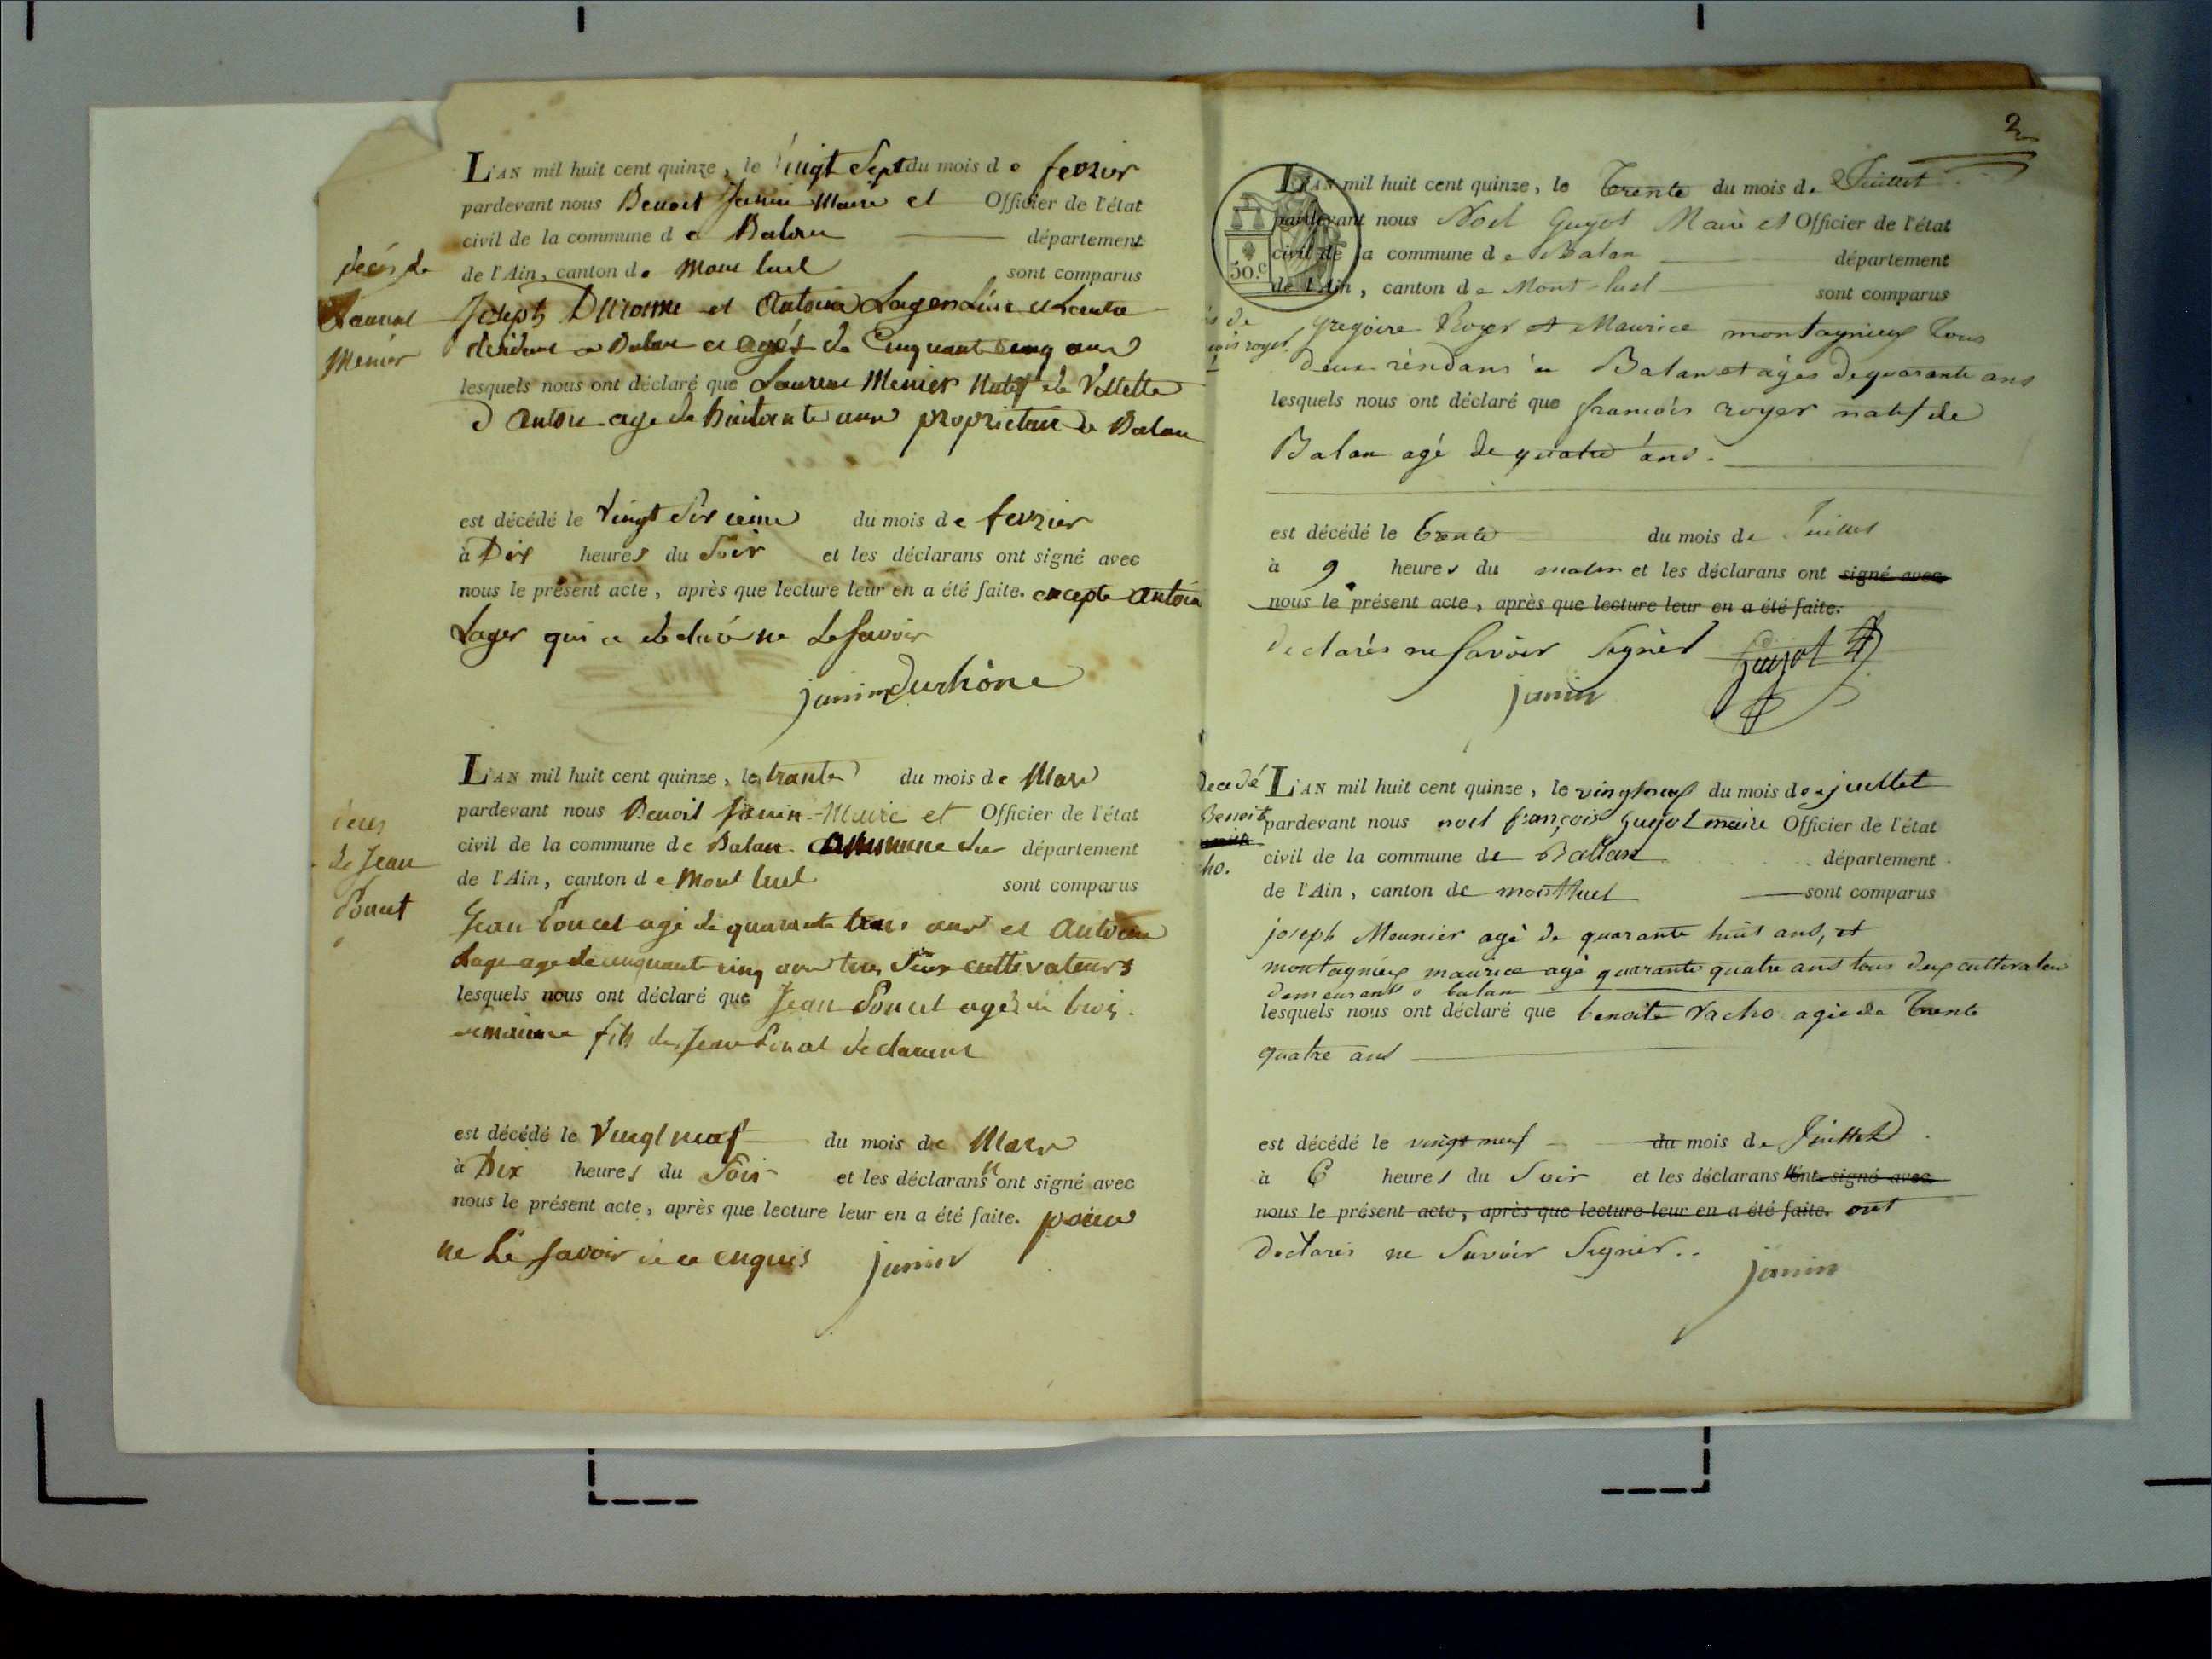 décès de
Laurent
Menier
L'AN mil huit cent quinze, le Vingt Sept du mois de fevrier
pardevant nous Benoit Janin Maire et Officier de l'état
civil de la commune de Balan département
de l'Ain, canton de Mont luel sont comparus
Joseph Durome et Antoine Lager
a Balan et agés de Cinquant cinq ans
lesquels nous ont déclaré que Laurent Menier Natif de Villette
d'anton age de huitante ans proprietaire a Balan
est décédé le Vingt Sixieme du mois de fevrier
à Dix heures du Soir et les déclarans ont signé avec
nous le présent acte, après que lecture leur en a été faite. excepte Antoin
Lager qui a declaré ne Le Savoir
janin Durhône
deces
de Jean
Poncet
L'AN mil huit cent quinze, le trante du mois de Mars
pardevant nous Benoit Janin Maire et Officier de l'état
civil de la commune de Balan département
de l'Ain, canton de Mont luel sont comparus
Jean Poncet agé de quarante trois ans et Antoine
Lage age de cinquant cinq ans tous Deux cultivateurs
lesquels nous ont déclaré que Jean Poncet agé de trois
semaine fils de Jean declarant
est décédé le Vingt neuf du mois de Mars
à Dix heures du Soir et les déclarans n'ont signé avec
nous le présent acte, après que lecture leur en a été faite. pour
ne Le Savoir de ce enquis janin
2
50.c
L'AN mil huit cent quinze, le Trente du mois de Juillet
pardevant nous Noel Guyot Maire et Officier de l'état
civil de la commune de Balan département
de l'Ain, canton de Mont-luel sont comparus
is de
cois royer
Gregoire Royer et Maurice montagnieux tous
deux résidans a Balan et âgés de quarante ans
lesquels nous ont déclaré que francois royer natif de
Balan agé de quatre ans.
est décédé le trente du mois de Juillet
à 9 heures du matin et les déclarans ont signé avec
nous le présent acte, après que lecture leur en a été faite.
declarés ne Savoir Signér Guyot
janin
Decedé
Benoite
ho.
L'AN mil huit cent quinze, le vingt neuf du mois de juillet
pardevant nous noel françois Guyot maire Officier de l'état
civil de la commune de Ballan département
de l'Ain, canton de montluel sont comparus
joseph Meunier agé de quarante huit ans, et
montagnieux maurice agé quarante quatre ans tous deux cultivateur
demeurants a balan
lesquels nous ont déclaré que benoite Vacho agée de Trente
quatre ans
est décédé le vingt neuf du mois de Juillet
à 6 heures du Soir et les déclarans ont signé avec
nous le présent acte, après que lecture leur en a été faite. ont
declarés ne Savoir Signér..
janin